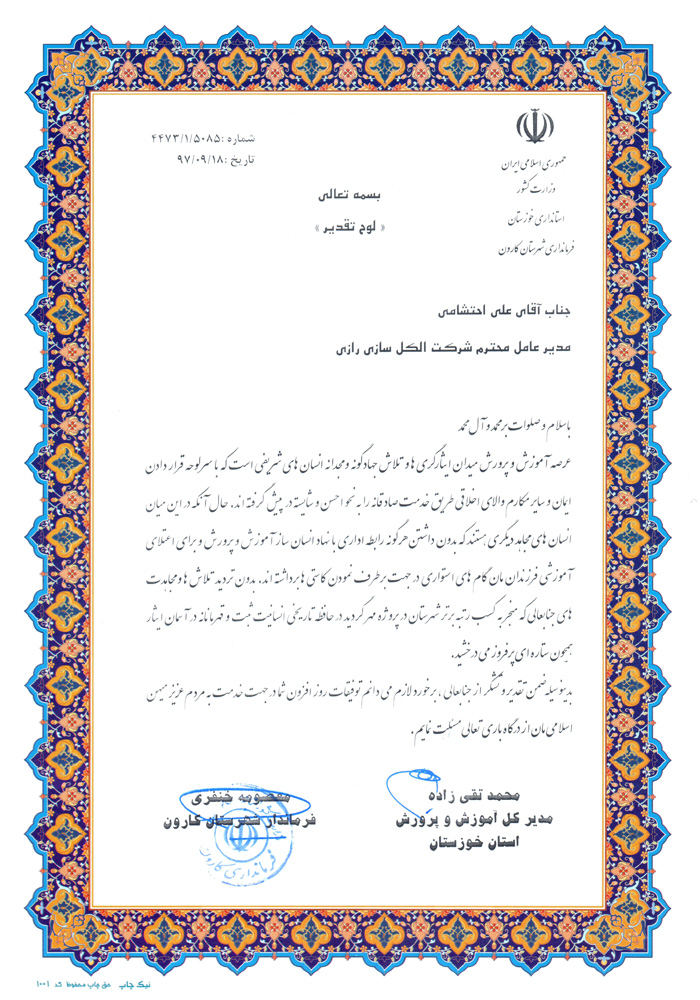 جمهوری اسلامی ایران
وزارت کشور
استانداری خوزستان
فرمانداری شهرستان کارون
شماره :۴۴۷۳/۱/۵۰۸۵
تاریخ :۹۷/۰۹/۱۸
بسمه تعالی
« لوح تقدیر »
جناب آقای علی احتشامی
مدیر عامل محترم شرکت الکل سازی رازی
با سلام و صلوات بر محمد و آل محمد
عرصه آموزش و پرورش میدان ایثارگری ها و تلاش جهادگونه و مجدانه انسان های شریفی است که با سرلوحه قرار دادن
ایمان و سایر مکارم والای اخلاقی طریق خدمت صادقانه را به نحو احسن و شایسته در پیش گرفته اند. حال آنکه در این میان
انسان های مجاهد دیگری هستند که بدون داشتن هرگونه رابطه اداری با نهاد انسان ساز آموزش و پرورش و برای اعتلای
آموزشی فرزندان مان گام های استواری در جهت برطرف نمودن کاستی ها برداشته اند. بدون تردید تلاش ها و مجاهدت
های جنابعالی که منجر به کسب رتبه برتر شهرستان در پروژه مهر گردید در حافظه تاریخی انسانیت ثبت و قهرمانانه در آسمان ایثار
همچون ستاره ای پرفروز می درخشید.
بدینوسیله ضمن تقدیر و تشکر از جنابعالی ، بر خود لازم می دانم توفیقات روز افزون شما در جهت خدمت به مردم عزیز میهن
اسلامی مان از درگاه باری تعالی مسئلت نمایم .
محمد تقی زاده
مدیر کل آموزش و پرورش
استان خوزستان
معصومه خنفری
فرماندار شهرستان کارون
فرمانداری کارون
نیک چاپ حق چاپ محفوظ کد ۱۰۰۱